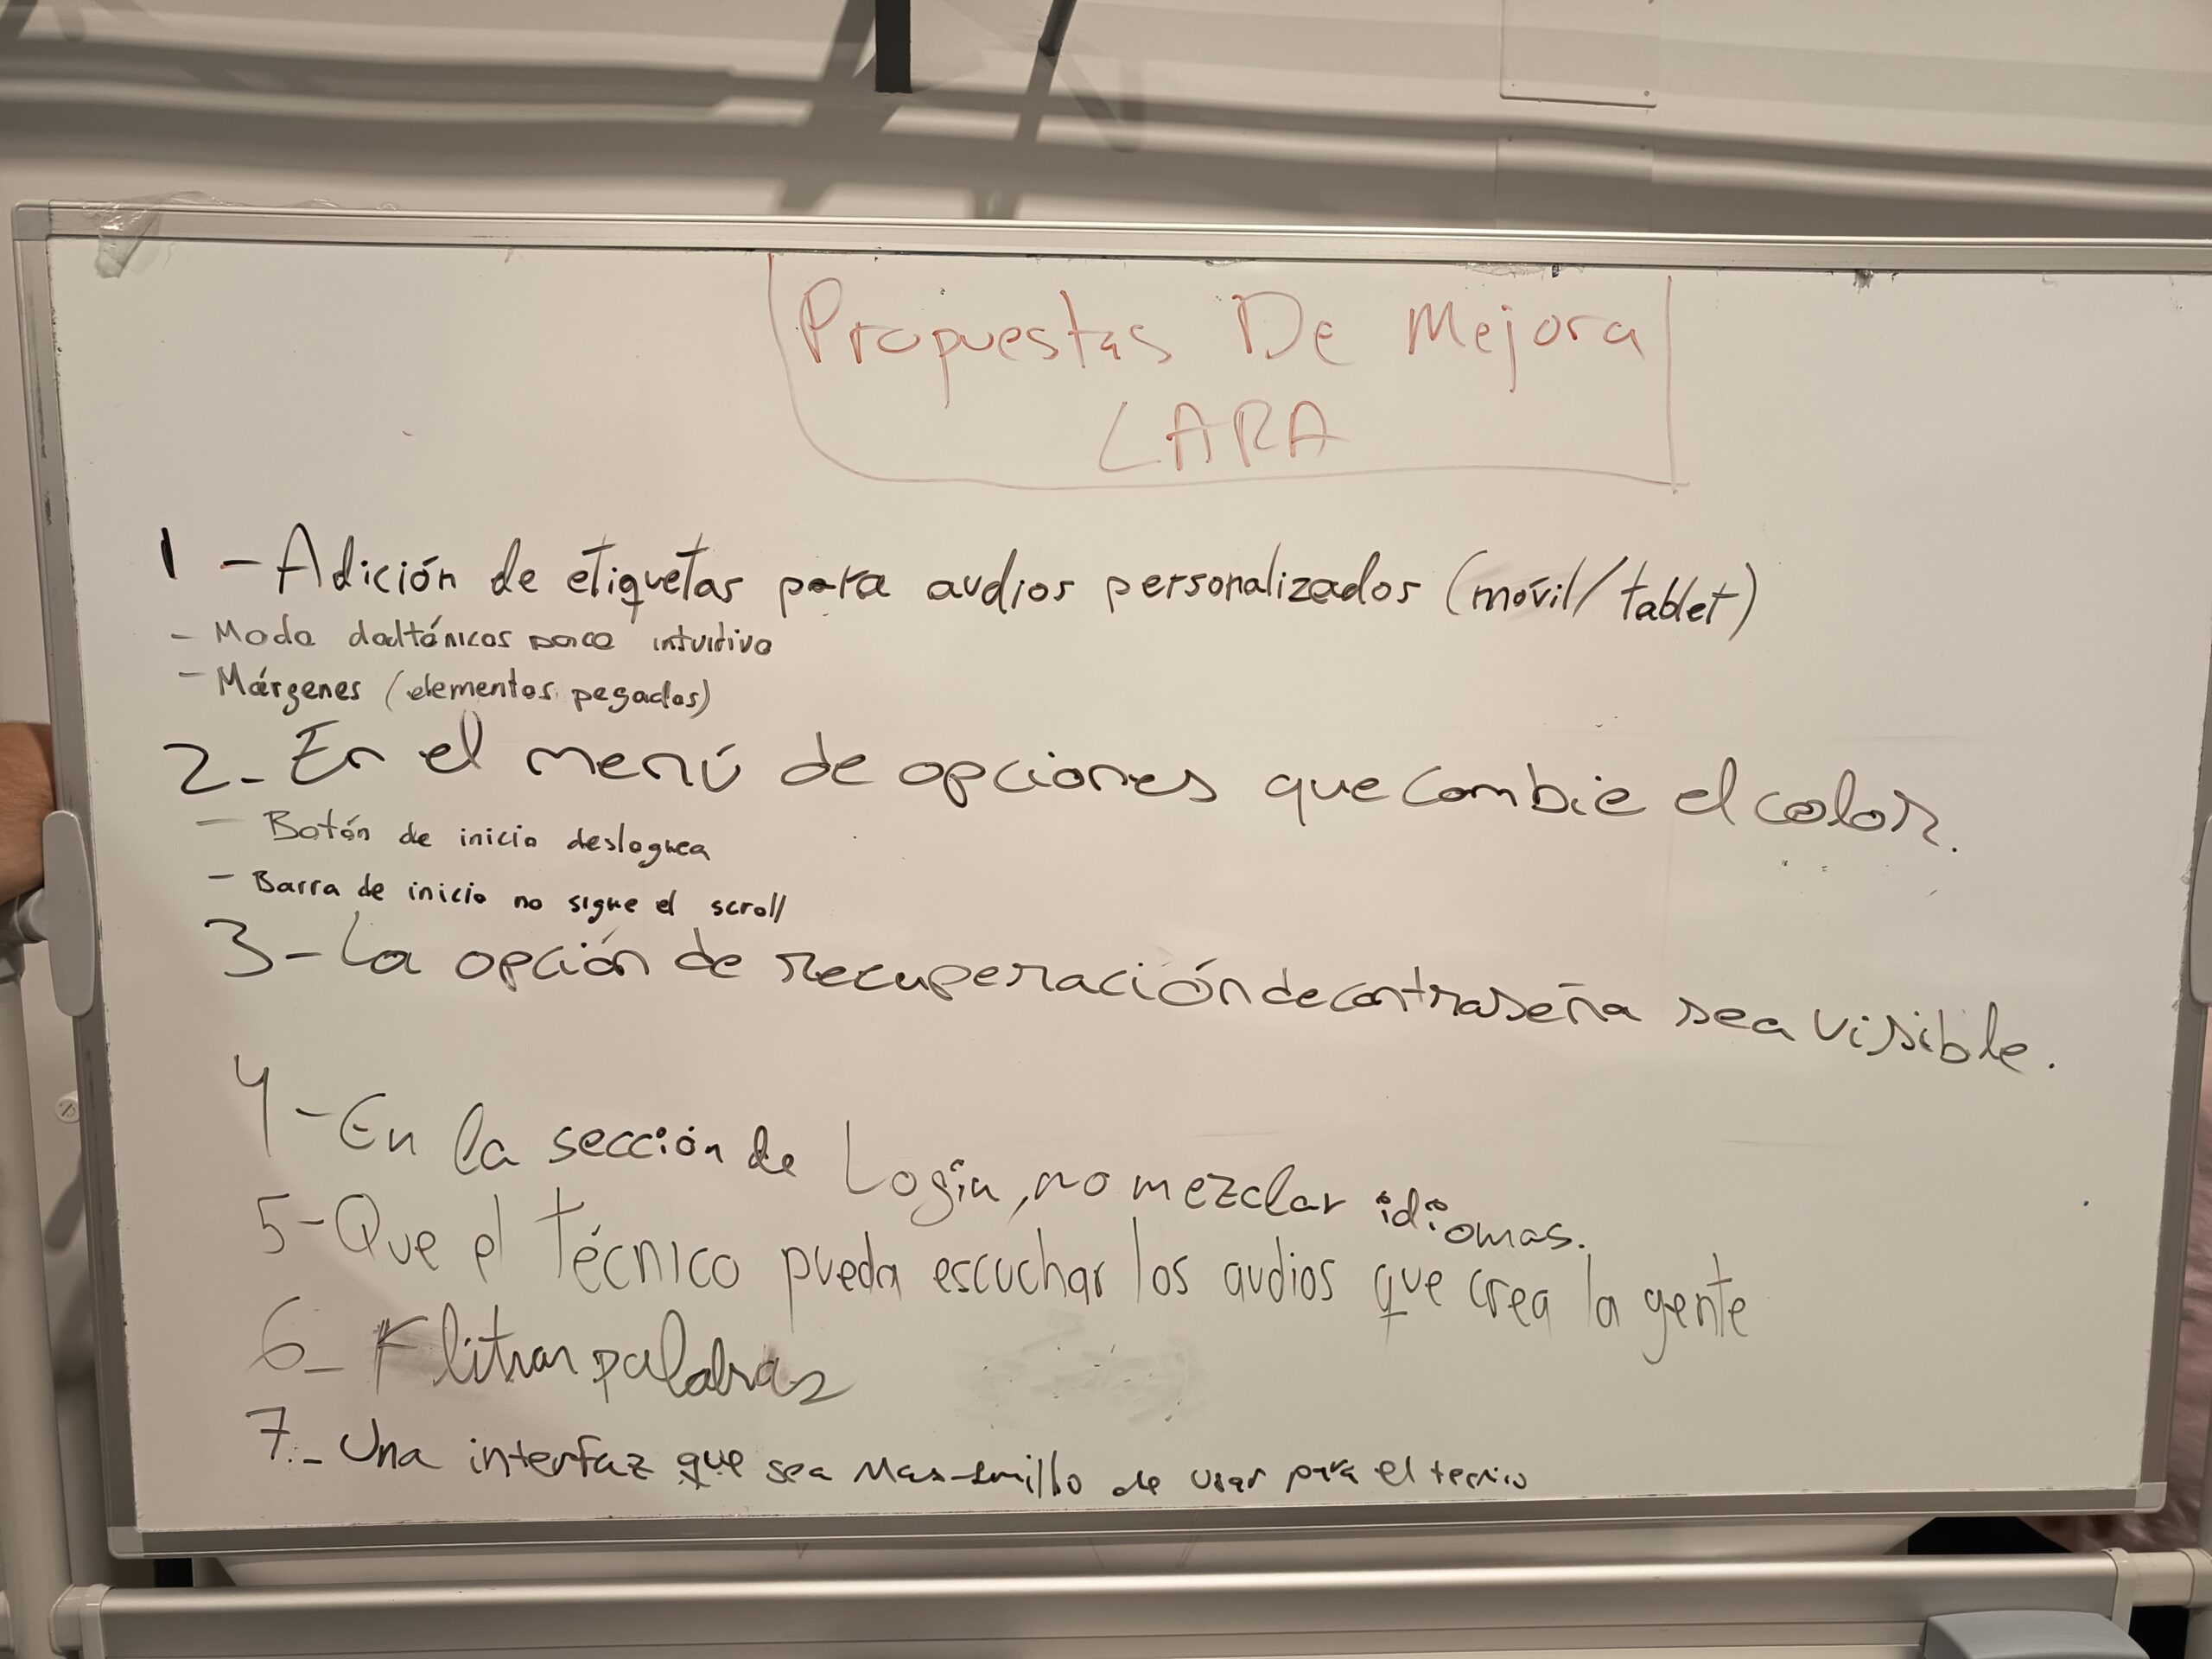 Propuestas De Mejora
LARA
1 - Adición de etiquetas para audios personalizados (móvil/tablet)
- Modo daltónicos poco intuitivo
- Márgenes (elementos pegados)
2- En el menú de opciones que cambie el color.
- Botón de inicio desloguea
- Barra de inicio no sigue el scroll
3- La opción de recuperación de contraseña sea visible.
4- En la sección de Login, no mezclar idiomas.
5- Que el técnico pueda escuchar los audios que crea la gente
6- Flitrar palabras
7.- Una interfaz que sea mas de usar para el tecnico